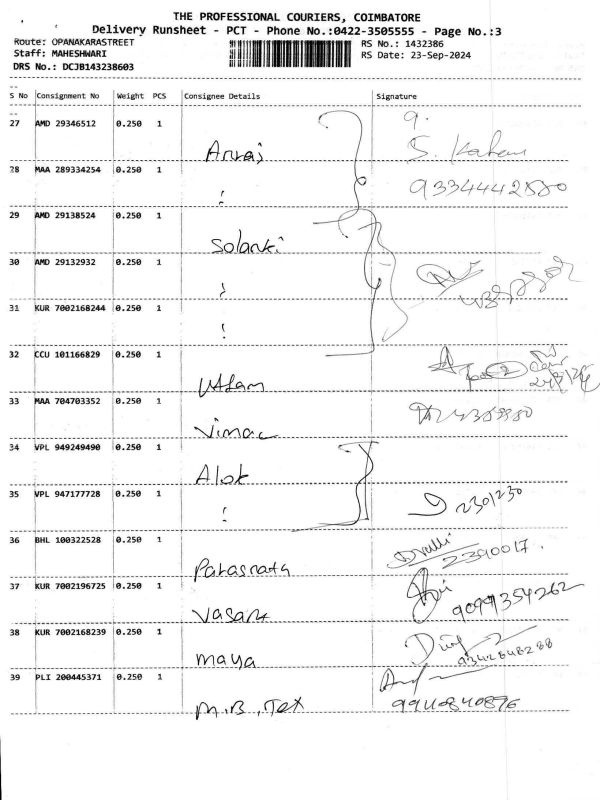 THE PROFESSIONAL COURIERS, COIMBATORE
Delivery Runsheet - PCT - Phone No.:0422-3505555 - Page No.:3
Route: OPANAKARASTREET
RS No.: 1432386
Staff: MAHESHWARI
RS Date: 23-Sep-2024
DRS No.: DCJB143238603
--
S No Consignment No Weight PCS Consignee Details Signature
--
27 AMD 29346512 0.250 1
9.
Anraj S.
28 MAA 289334254 0.250 1
9334442580
29 AMD 29138524 0.250 1
Solanki
30 AMD 29132932 0.250 1
31 KUR 7002168244 0.250 1
32 CCU 101166829 0.250 1
Uttam
33 MAA 704703352 0.250 1
Vimac
34 VPL 949249490 0.250 1
Alok
35 VPL 947177728 0.250 1
2301230
36 BHL 100322528 0.250 1
2390017.
Parasnath
37 KUR 7002196725 0.250 1
Vasant 9099354262
38 KUR 7002168239 0.250 1
maya 9342848288
39 PLI 200445371 0.250 1
M.B, Tex 9940840876